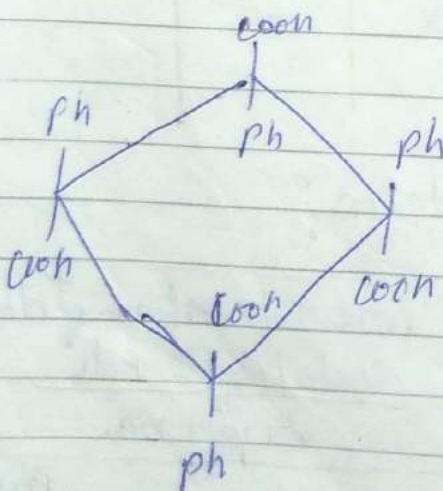 cooh
ph
ph
ph
cooh
cooh
cooh
ph